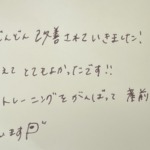 どんどん改善されていきました!
えて とてもよかったです!!
トレーニングをがんばって 産前
します